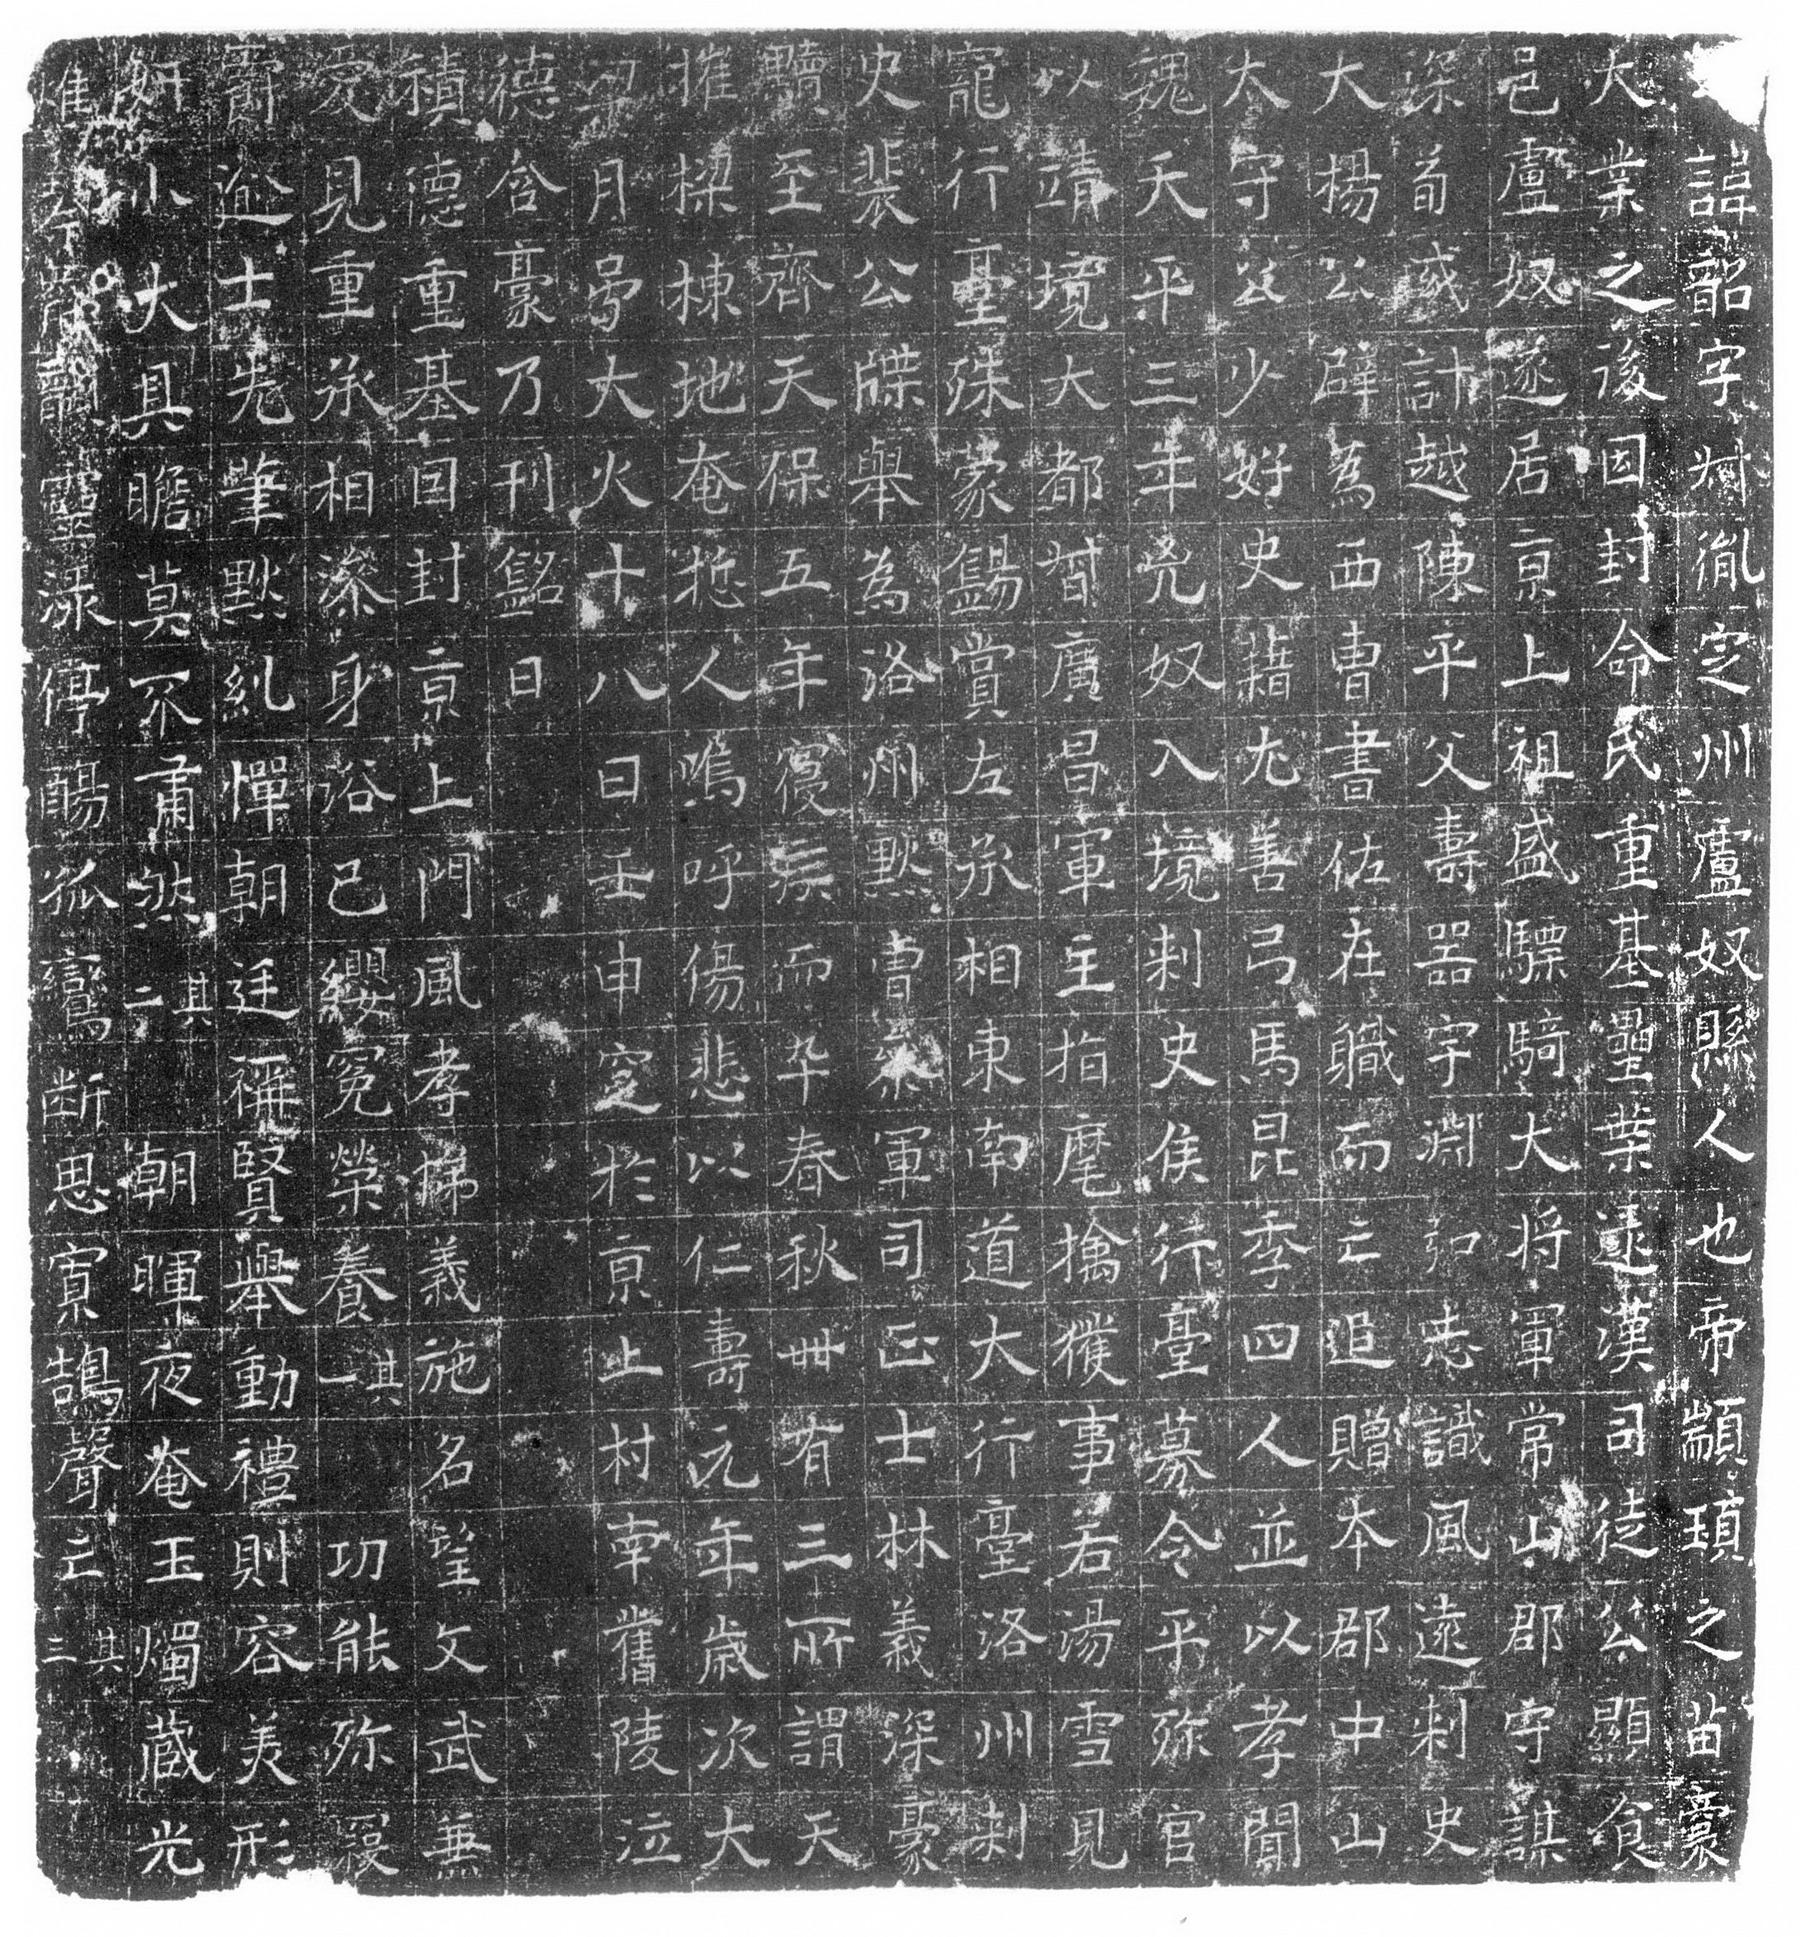 諱韶字㻪胤定州盧奴縣人也帝顓頊之苗裔
大業之後因封命氏重基壘葉遠漢司徒公顯食
邑盧奴遂居京上祖盛驃騎大將軍常山郡守謀
深荀彧計越陳平父壽器宇淵弘志識風遠刺史
大楊公辟為西曹書佐在職而亡追贈本郡中山
太守公少好史籍尤善弓馬昆季四人並以孝聞
魏天平三年兇奴入境刺史侯行臺募令平殄官
以靖境大都督廣昌軍主指麾擒獲事若湯雪見
寵行臺殊蒙錫賞左丞相東南道大行臺洛州刺
史裴公牒舉為洛州默曹參軍司正士林義深豪
黷至齊天保五年寢疾而卒春秋卌有三所謂天
摧樑棟地奄悊人嗚呼傷悲以仁壽元年歲次大
梁月号大火十八日壬申窆於京止村南舊陵泣
德含豪乃刊銘曰
積德重基因封京上門風孝悌義施名望文武兼
愛見重承相潔身浴己纓冕榮養其一功能殄寇
爵逾士先筆默糺憚朝廷稱賢舉動禮則容美形
妍小大具瞻莫不肅然其二朝暉夜奄玉燭蔵光
靈淥停觴孤鸞斷思寡鵠聲亡其三